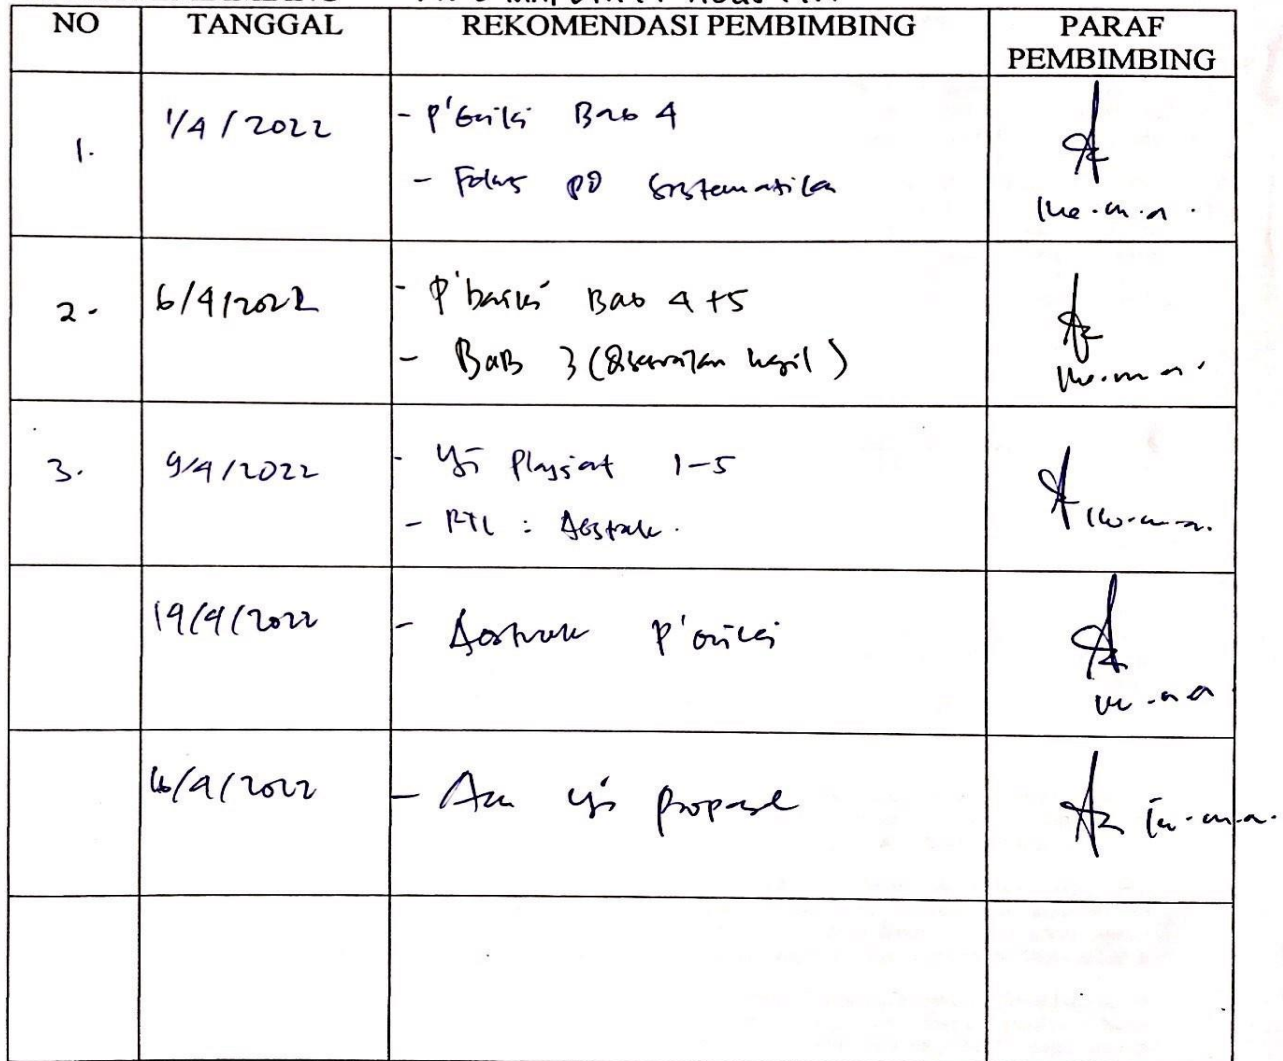 NO TANGGAL REKOMENDASI PEMBIMBING PARAF
PEMBIMBING
1. 1/4/2022 - P'baiki Bab 4
- Fokus pd sistematika
2. 6/4/2022 - P'baiki Bab 4+5
- BaB 3 (hasil)
3. 9/4/2022 - Uji Plagiat 1-5
- RTL : Abstrak.
19/4/2022 - Abstrak P'baiki
/4/2022 - Acc uji proposal